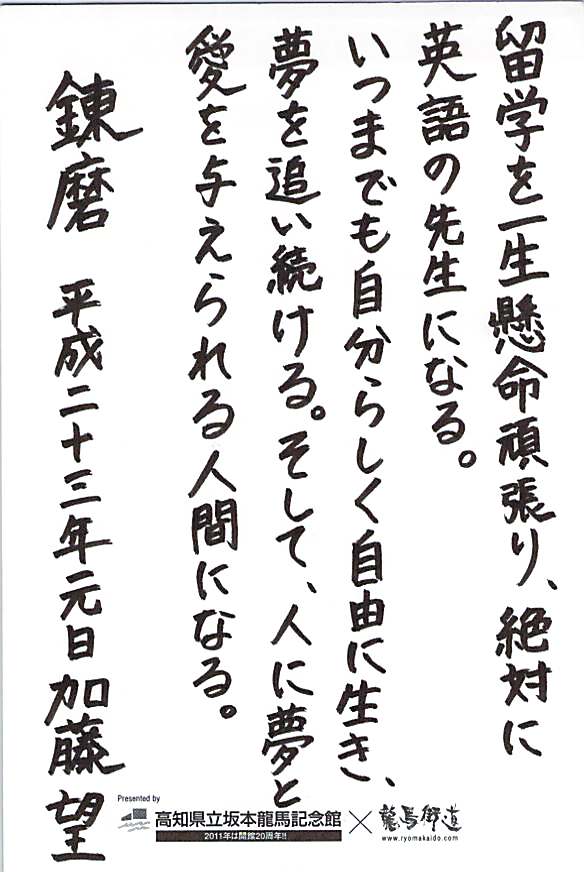 留学を一生懸命頑張り、絶対に
英語の先生になる。
いつまでも自分らしく自由に生き、
夢を追い続ける。そして、人に夢と
愛を与えられる人間になる。
錬磨 平成二十三年元日 加藤望
Presented by
高知県立坂本龍馬記念館
2011年は開館20周年!!
×
龍馬街道
www.ryomakaido.com